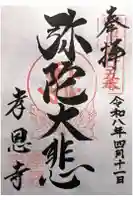 奉拝
令和八年四月十一日
弥陀大悲
孝恩寺